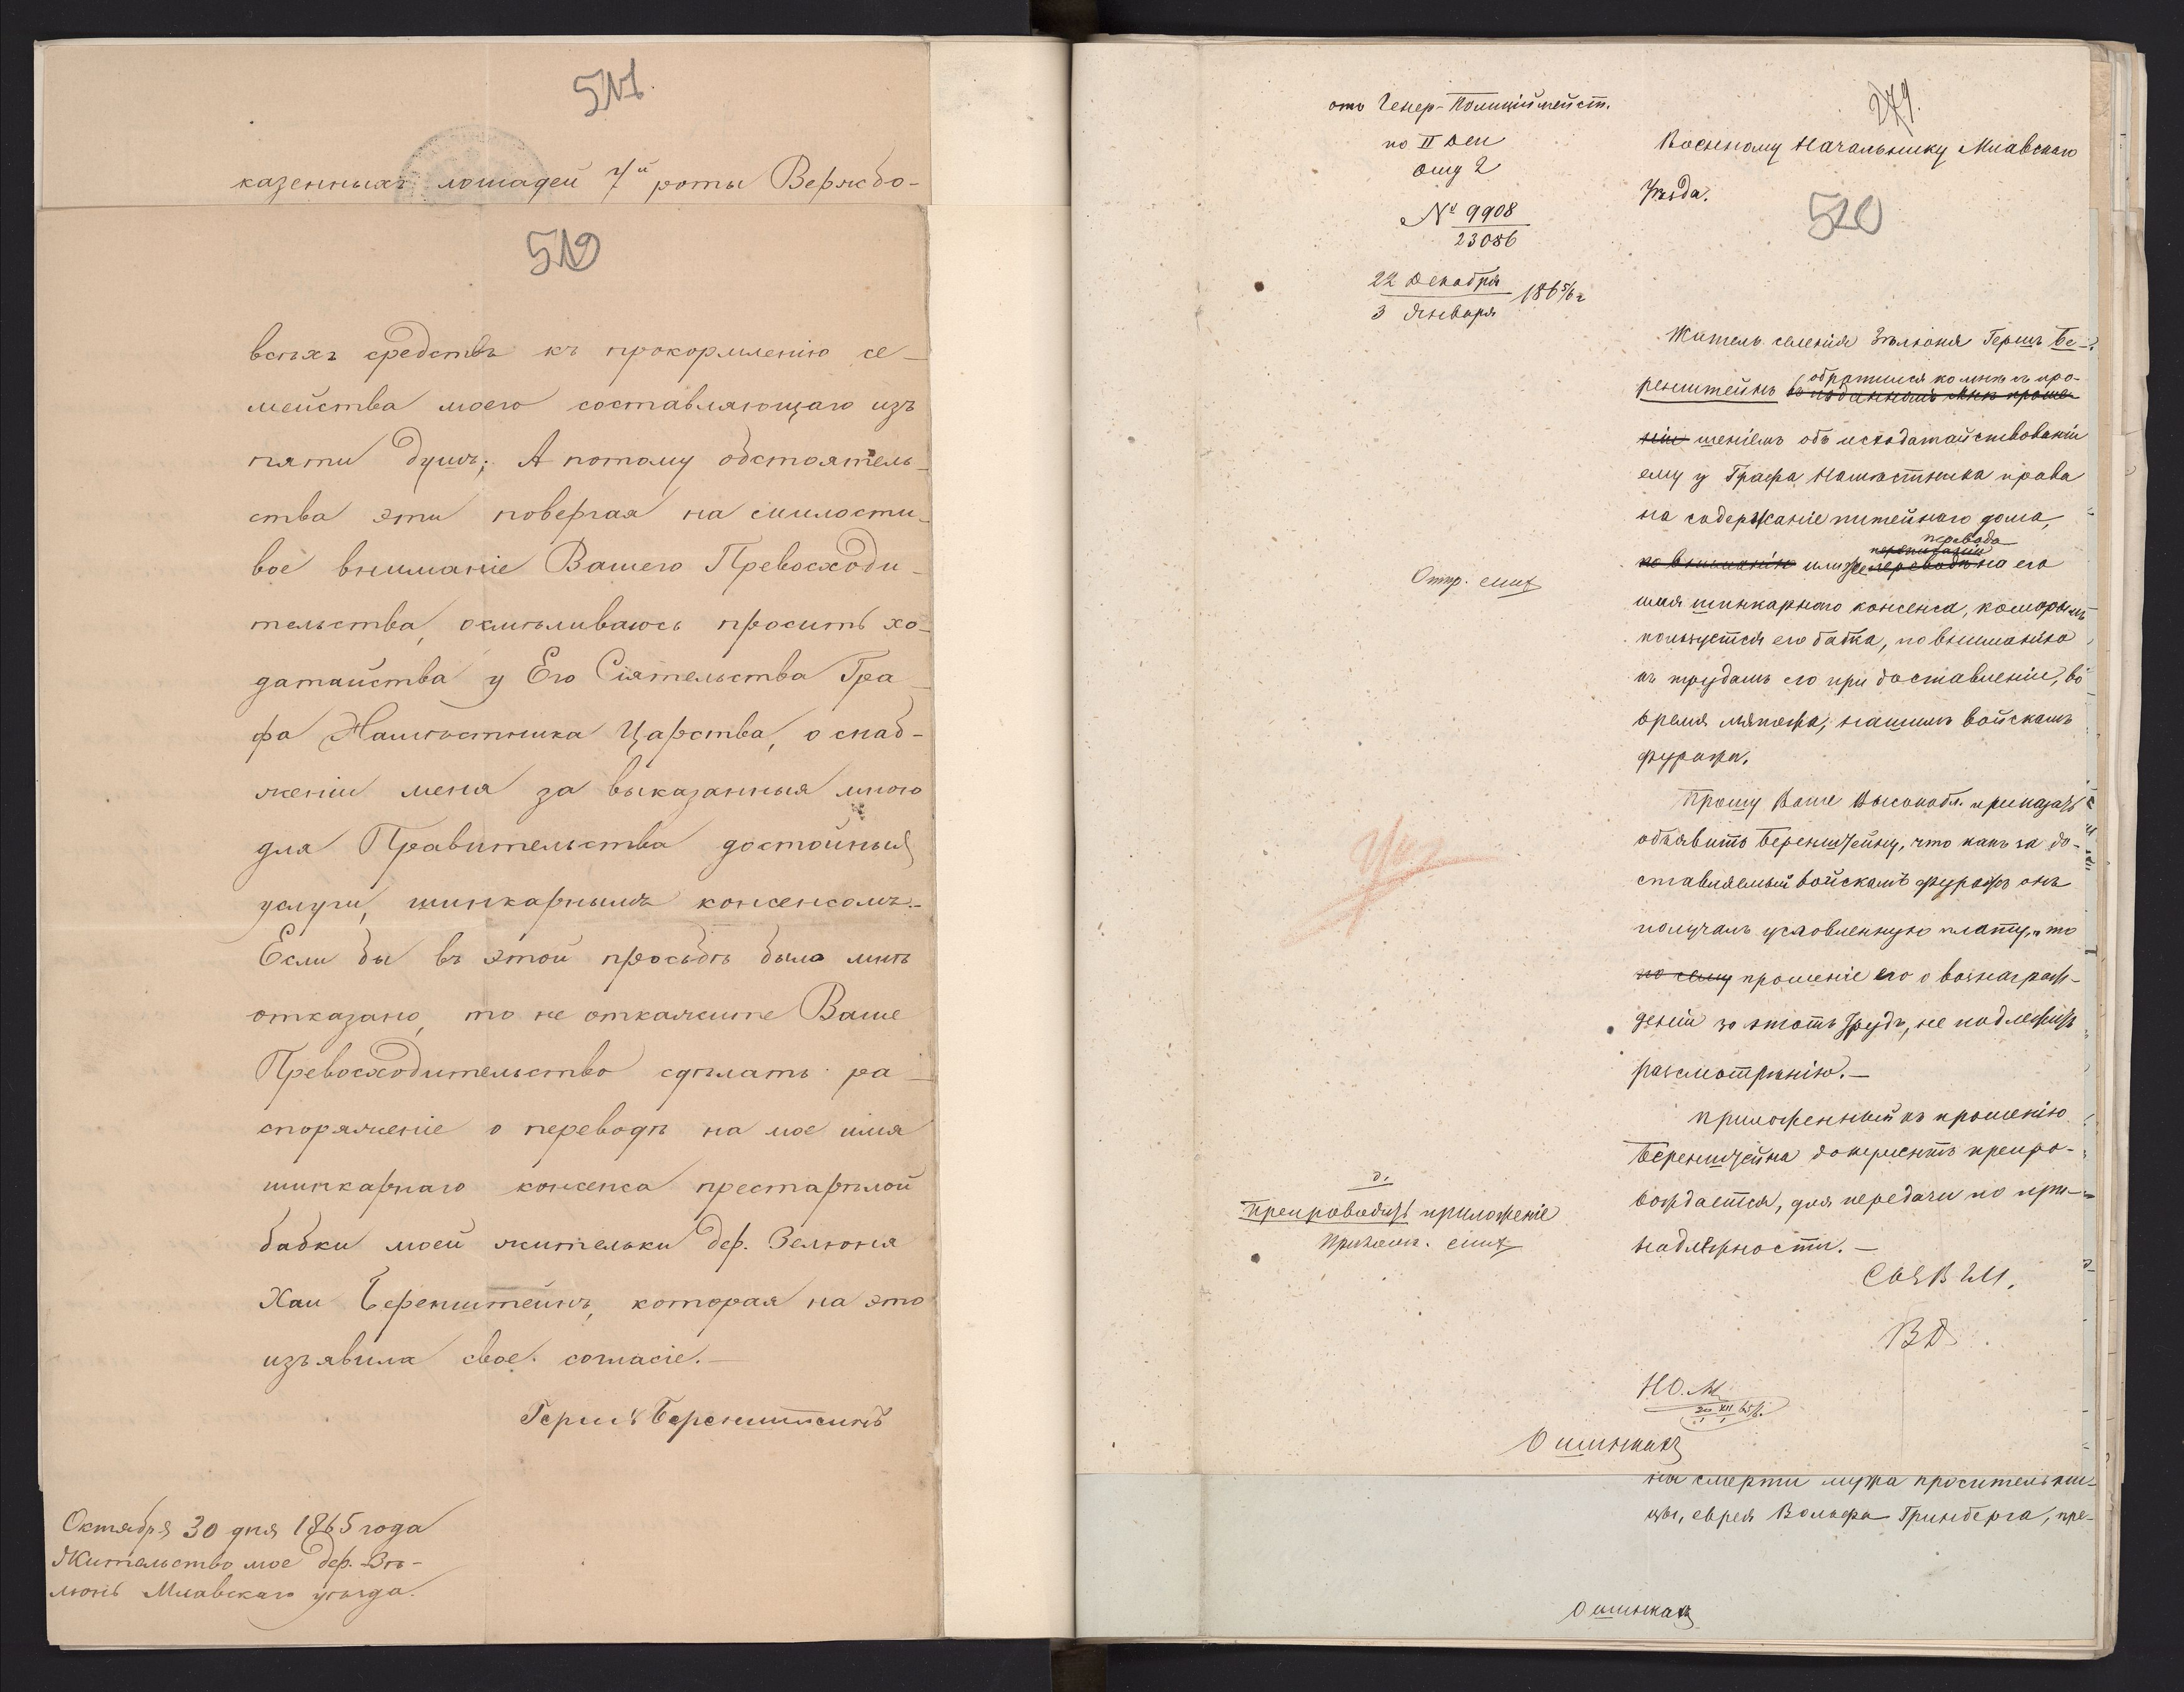 511
казенныхъ лошадей 7й роты Вержбо-
519
всѣхъ средствъ къ прокормленію се-
мейства моего составляющаго изъ
пяти душъ; А потому обстоятель-
ства эти повергая на милости-
вое вниманіе Вашего Превосходи-
тельства, осмѣливаюсь просить хо-
датайства у Его Сіятельства Гра-
фа Намѣстника Царства, о снаб-
женіи меня за выказанныя мною
для Правительства достойныя
услуги, шинкарнымъ консенсомъ.-
Если бы въ этой просьбѣ было мнѣ
отказано, то не откажите Ваше
Превосходительство сдѣлать ра-
споряженіе о переводѣ на мое имя
шинкарнаго консенса престарѣлой
бабки моей жительки дер. Зелюня
Хаи Беренштейнъ, которая на это
изъявила свое согласіе.-
Гершъ Беренштейнъ
Октября 30 дня 1865 года
Жительство мое дер. Зѣ-
люнь Млавскаго уѣзда.
отъ Генер-Полиціймейст.
по II Деп
отд 2
№ 9908
23086
22 Декабря
3 Января
1865/6 г
279.
Военному Начальнику Млавскаго
Уѣзда.
520
Житель селенія Зѣлюня Гершъ Бе-
ренштейнъ обратился ко мнѣ съ про-
въ поданномъ мнѣ проше-
ніи шеніемъ объ исходатайствованіи
ему у Графа Намѣстника права
на содержаніе питейнаго дома,
перевода
по вниманію или же переводѣ на его
имя шинкарнаго консенса, которымъ
пользуется его бабка, по вниманію
къ трудамъ его при доставленіи, во
время мятежа, нашимъ войскамъ
фуража.
Прошу Ваше Высокобл. приказать
объявить Беренштейну, что какъ за до-
ставляемый войскамъ фуражъ онъ
получалъ условленную плату, то
по сему прошеніе его о вознаграж-
деніи за этотъ трудъ, не подлежитъ
разсмотрѣнію.-
Приложенный къ прошенію
Беренштейна документъ препро-
вождается, для передачи по при-
надлежности.-
Препроводить приложеніе
ВД
О шинкахъ
на смерти мужа просительни-
цы, еврея Вольфа Гринберга, пре-
О шинкахъ